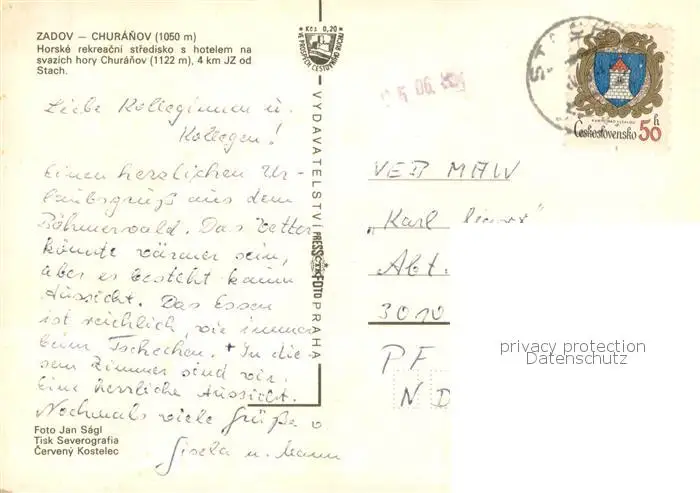 ZADOV — CHURÁŇOV (1050 m)
Horské rekreační středisko s hotelem na
svazích hory Churáňov (1122 m), 4 km JZ od
Stach.
Liebe Kolleginnen u.
Kollegen!
Einen herzlichen Ur-
laubsgruß aus dem
Böhmerwald. Das Wetter
könnte wärmer sein,
aber es besteht kaum
Aussicht. Das Essen
ist reichlich, wie immer
beim Tschechen. + In die-
sem Zimmer sind wir.
Eine herrliche Aussicht.
Nochmals viele Grüße v.
Gisela u. Mann
Foto Jan Ságl
Tisk Severografia
Červený Kostelec
Kčs 0,20
VE PROSPĚCH CESTOVNÍHO RUCHU
VYDAVATELSTVÍ PRESSFOTO PRAHA
06.
Československo 50 h
VEB MAW
„Karl
Abt.
3010
PF
N D
privacy protection
Datenschutz